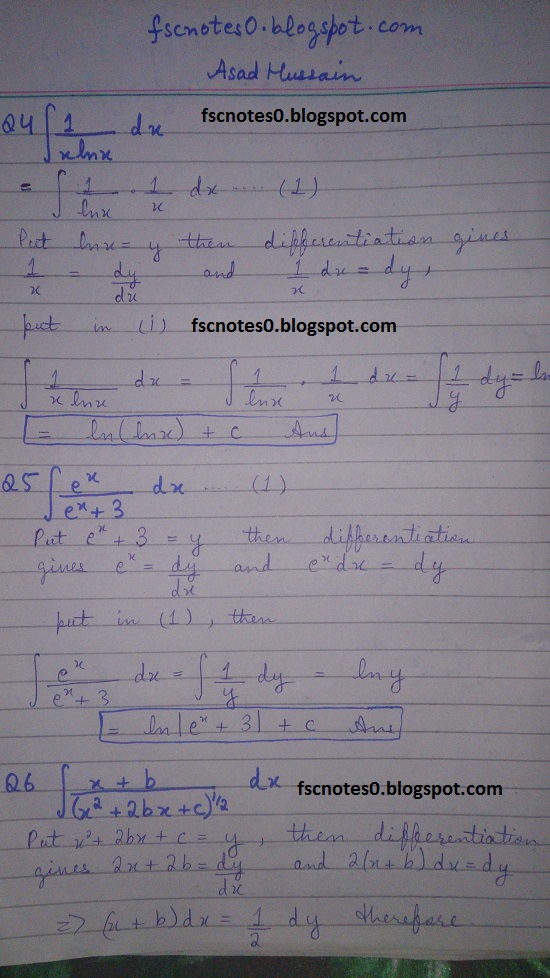 fscnotes0.blogspot.com
Asad Hussain
Q4 ∫ 1/(x lnx) dx fscnotes0.blogspot.com
= ∫ 1/lnx · 1/x dx ..... (1)
Put lnx = y then differentiation gives
1/x = dy/dx and 1/x dx = dy,
put in (i) fscnotes0.blogspot.com
∫ 1/(x lnx) dx = ∫ 1/lnx · 1/x dx = ∫ 1/y dy = ln
= ln(lnx) + c Ans
Q5 ∫ e^x/(e^x + 3) dx ..... (1)
Put e^x + 3 = y then differentiation
gives e^x = dy/dx and e^x dx = dy
put in (1), then
∫ e^x/(e^x + 3) dx = ∫ 1/y dy = ln y
= ln|e^x + 3| + c Ans
Q6 ∫ (x + b)/(x² + 2bx + c)^1/2 dx fscnotes0.blogspot.com
Put x² + 2bx + c = y, then differentiation
gives 2x + 2b = dy/dx and 2(x + b) dx = dy
=> (x + b) dx = 1/2 dy therefore